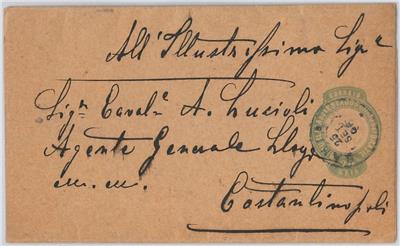 All' Illustrissimo Sigre
Sigr Cavalre A. Lucioli
Agente Generale Lloyd
m. m.
Costantinopoli